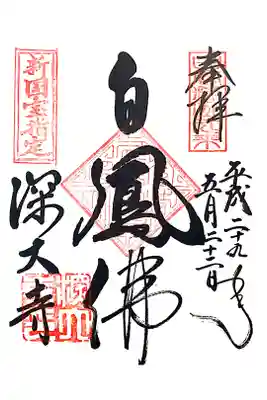 奉拝
平成二十九年
五月二十二日
白鳳佛
新国宝指定
深大寺